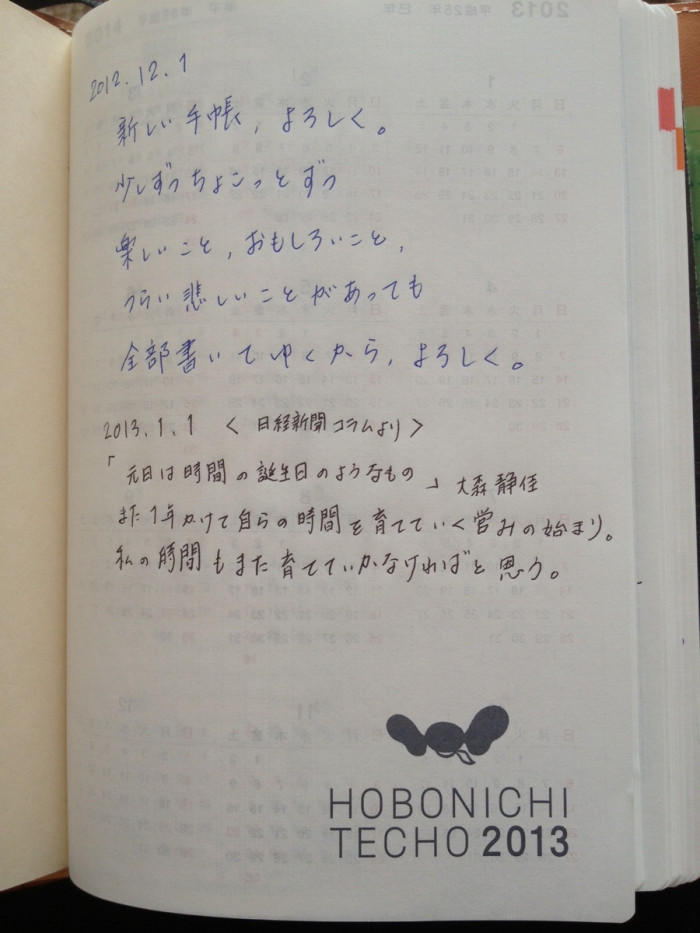 2012.12.1
新しい手帳, よろしく。
少しずつちょこっとずつ
楽しいこと, おもしろいこと,
つらい悲しいことがあっても
全部書いてゆくから, よろしく。
2013.1.1 < 日経新聞コラムより >
「元日は時間の誕生日のようなもの」 大森静佳
また1年かけて自らの時間を育てていく営みの始まり。
私の時間もまた育てていかなければと思う。
HOBONICHI
TECHO 2013